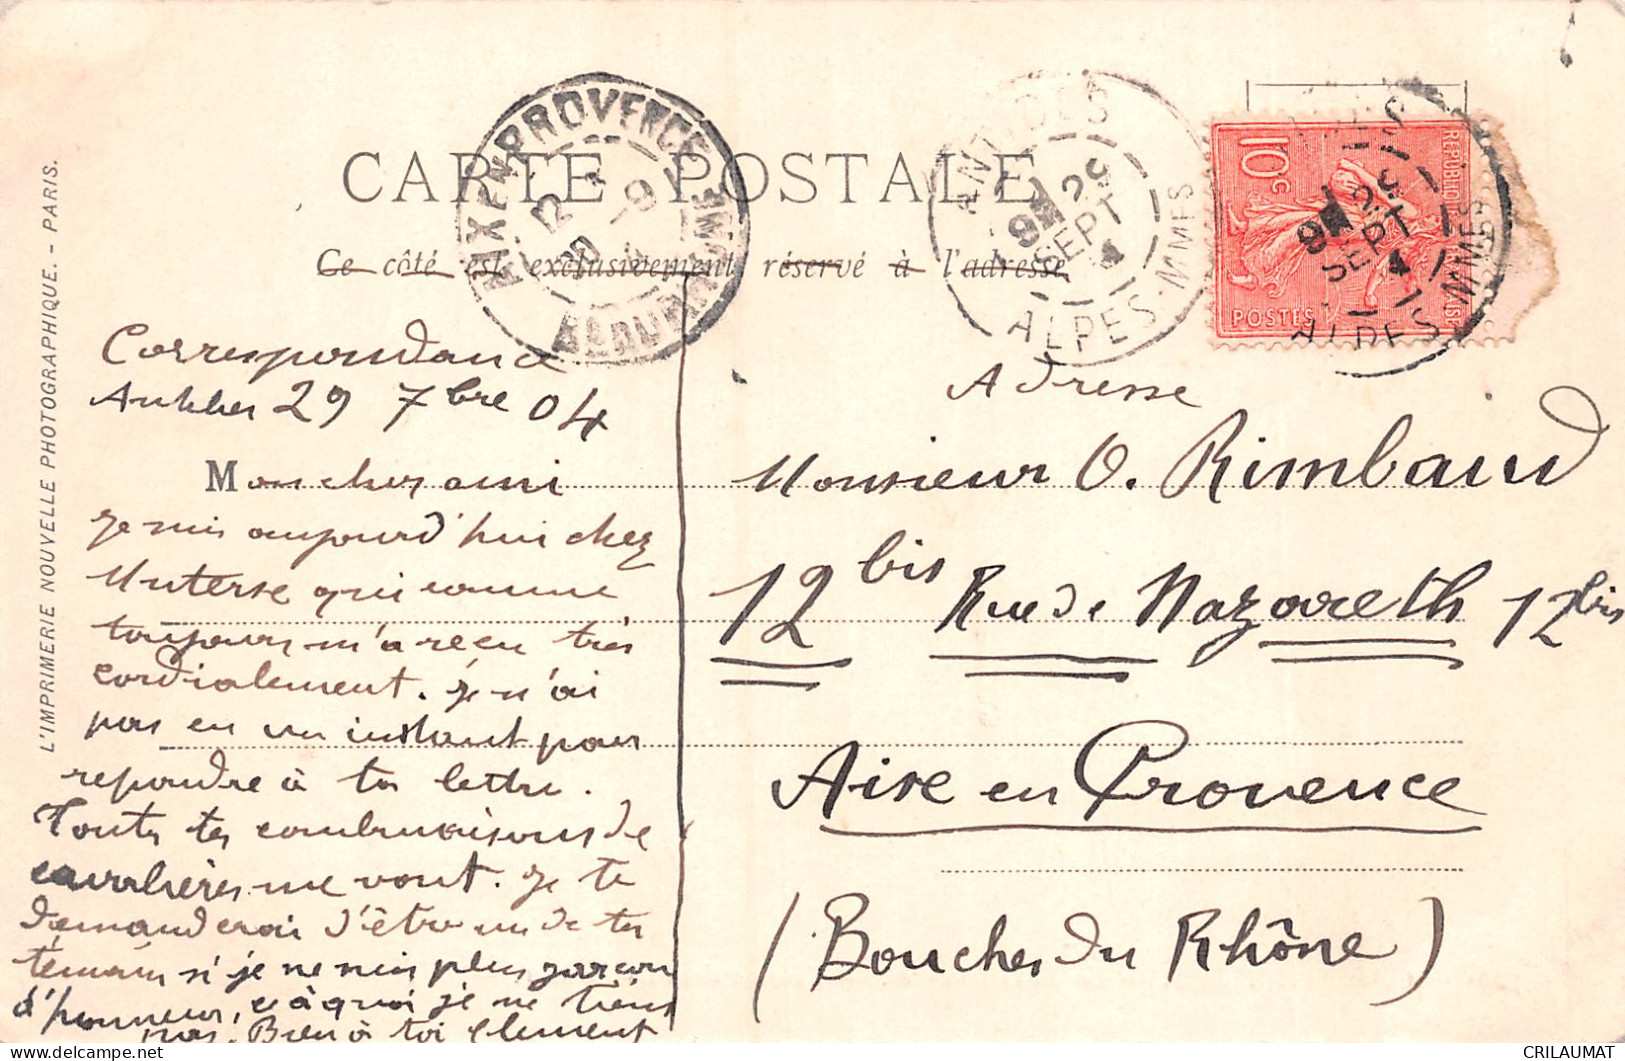 CARTE POSTALE
Ce côté est exclusivement réservé à l'adresse
L'IMPRIMERIE NOUVELLE PHOTOGRAPHIQUE. - PARIS.
AIX EN PROVENCE
12
9
BOUCHES DU RHONE
ANTIBES
29
SEPT
ALPES-MMES
ANTIBES
29
SEPT
ALPES-MMES
10c
POSTES
Correspondance
Antibes 29 7bre 04
Mon cher ami
Je suis aujourd'hui chez
qui comme
toujours m'a reçu très
cordialement. Je n'ai
pas eu un instant pour
repondre à ta lettre.
Toutes tes combinaisons de
cavalières me vont. Je te
demanderai d'être un de tes
témoins si je ne suis plus garçon
d'honneur, ce à quoi je ne tiens
pas. Bien à toi Clement
Adresse
Monsieur O. Rimbaud
12 bis Rue de Nazareth 12 bis
Aixe en Provence
(Bouches du Rhône)
CRILAUMAT